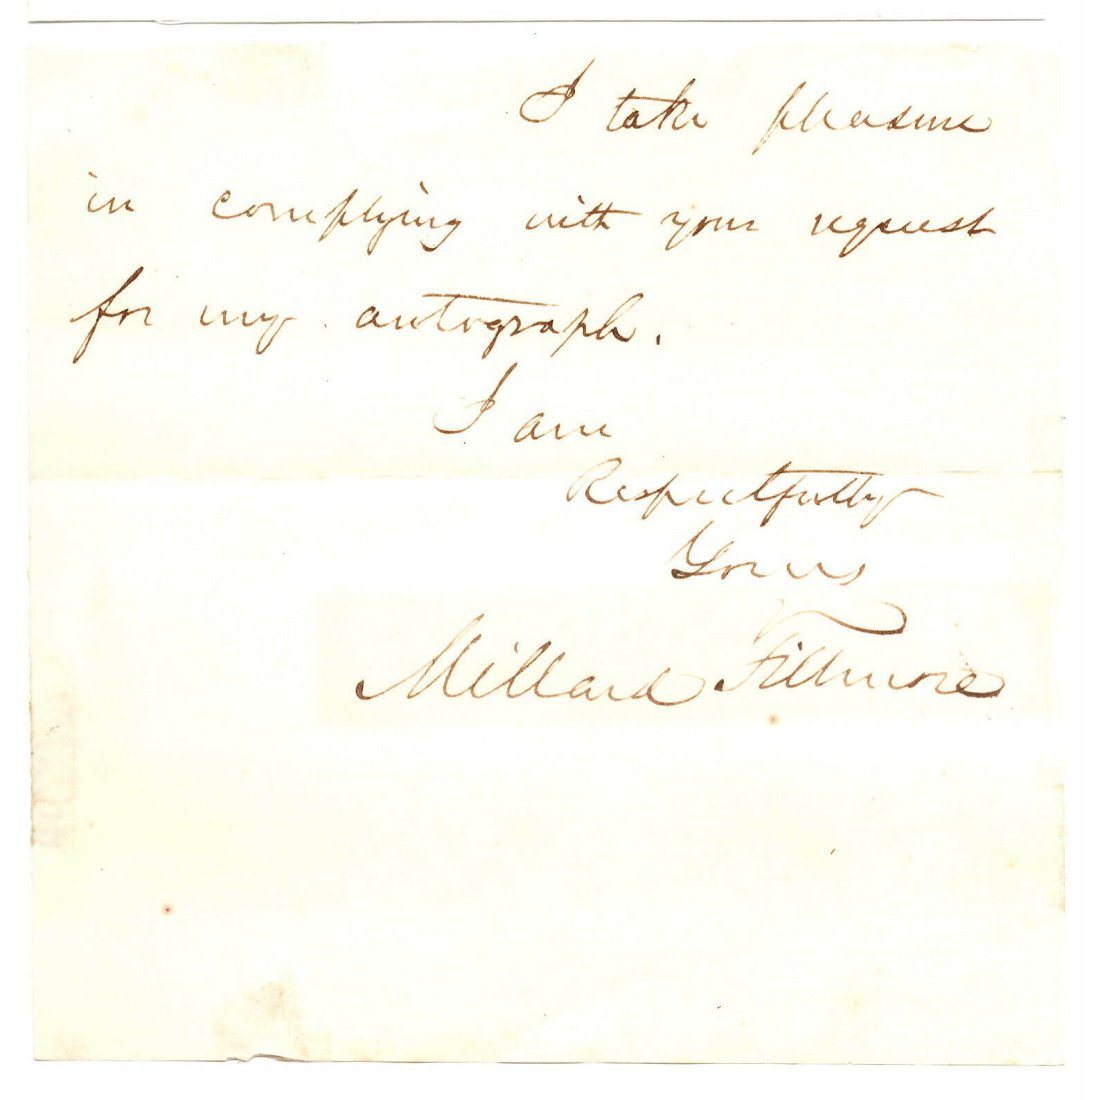 I take pleasure
in complying with your request
for my autograph.
I am
Respectfully
Yours
Millard Fillmore